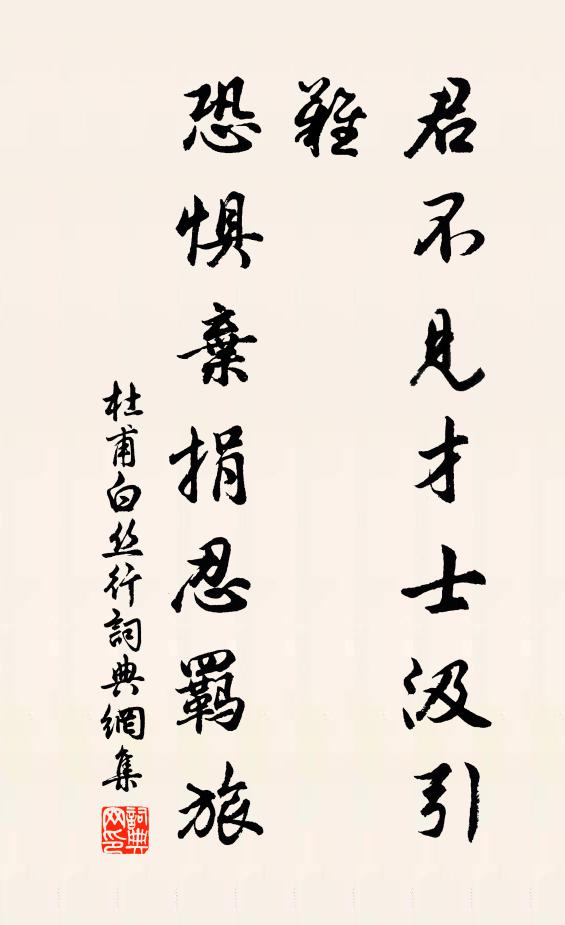 君不見才士汲引
難
恐懼棄捐忍羈旅
杜甫白丝行詞典網集
詞典网印